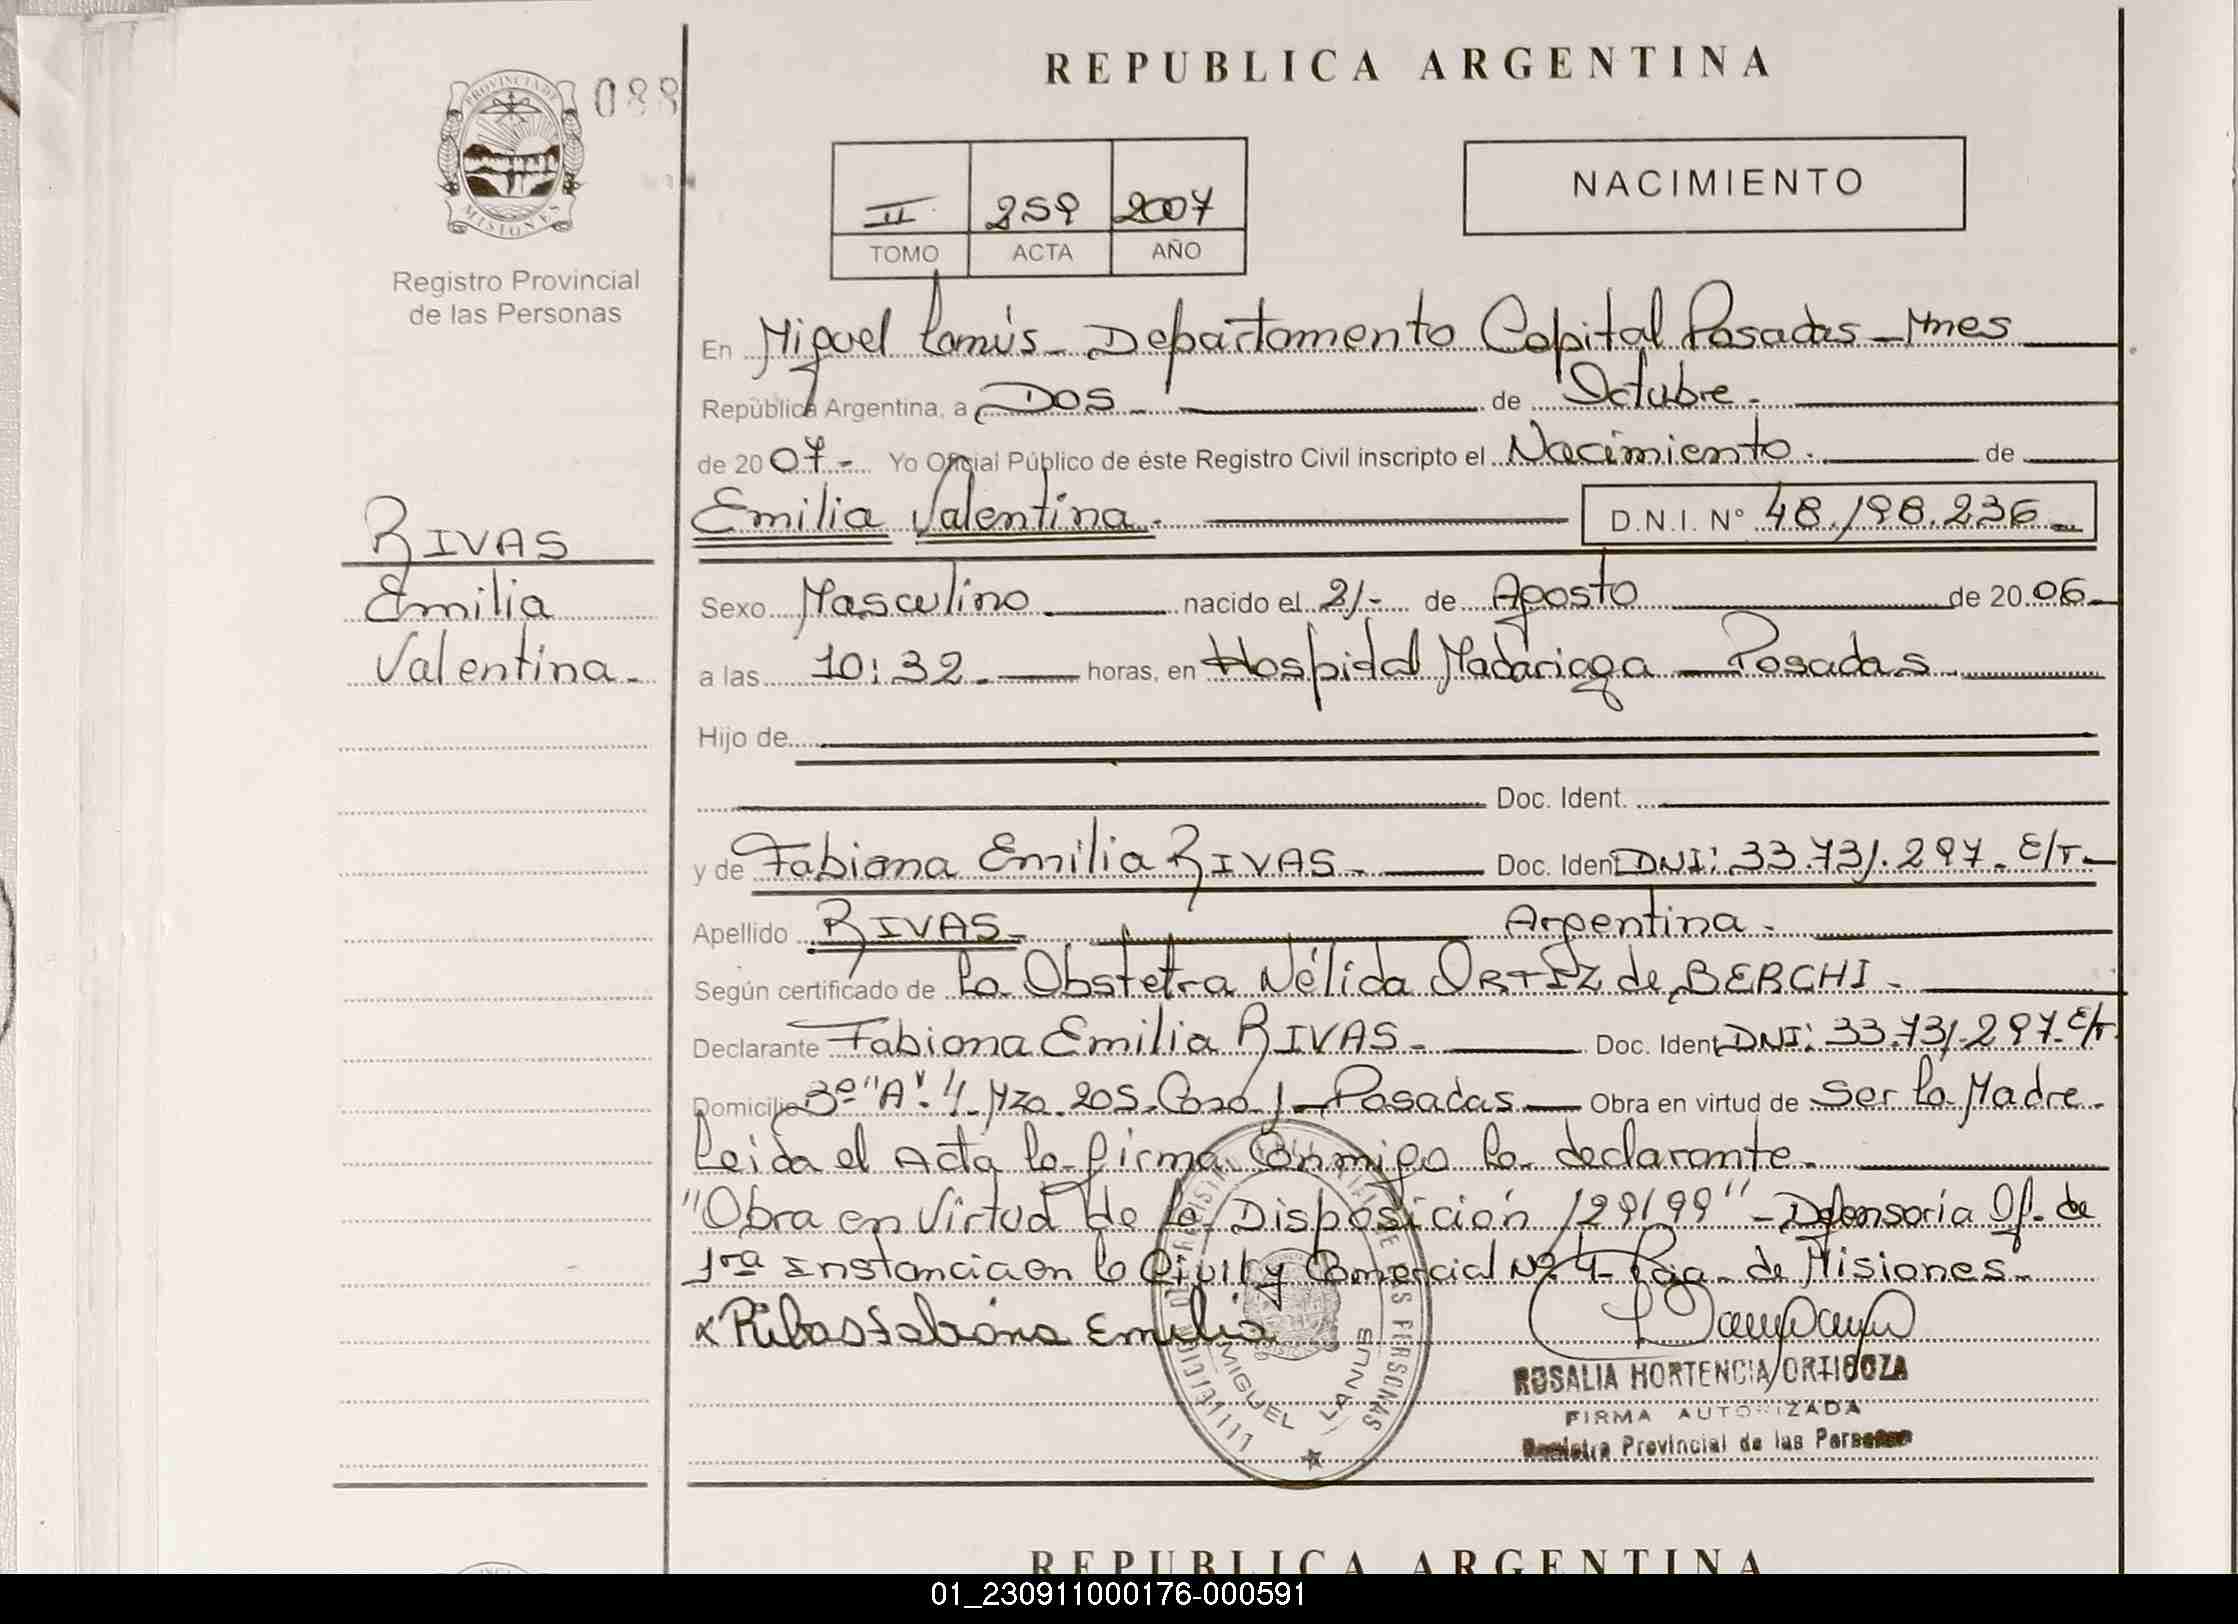 REPUBLICA ARGENTINA
PROVINCIA DE
MISIONES
088
NACIMIENTO
II 259 2007
TOMO ACTA AÑO
Registro Provincial
de las Personas
En Miguel Lanús - Departamento Capital Posadas - Mnes
República Argentina, a Dos - de Octubre -
de 2007 - Yo Oficial Público de éste Registro Civil inscripto el Nacimiento - de
RIVAS
Emilia
Valentina -
Emilia Valentina - D.N.I. Nº 48.198.236 -
Sexo Masculino nacido el 21 - de Agosto de 2006 -
a las 10:32 - horas, en Hospital Madariaga - Posadas -
Hijo de
Doc. Ident.
y de Fabiana Emilia RIVAS - Doc. Ident DNI: 33.731.297 - E/T -
Apellido RIVAS - Argentina -
Según certificado de La Obstetra Nélida ORTIZ de BERCHI -
Declarante Fabiana Emilia RIVAS - Doc. Ident DNI: 33.731.297 - E/T -
Domicilio 3º "A" - Mza. 205 - Casa 1 - Posadas - Obra en virtud de Ser la Madre -
Leida el Acta la firma Conmigo la declarante -
"Obra en Virtud de la Disposición 129/99" - Defensoría Of. de
1ra Instancia en lo Civil y Comercial Nº 4 - Pcia - de Misiones -
x Ribas fabiana Emilia
MIGUEL LANUS
ROSALIA HORTENCIA ORTIGOZA
FIRMA AUTORIZADA
Registro Provincial de las Personas
REPUBLICA ARGENTINA
01_230911000176-000591